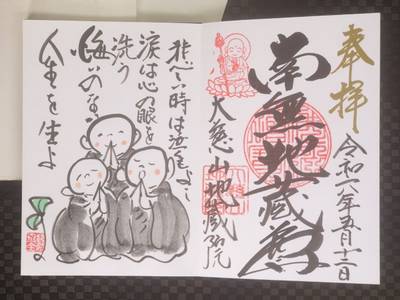 奉拝
令和八年五月十二日
南無地蔵尊
大慈山地蔵院
悲しい時は泣くもよし
涙は心の眼を
洗う
悔いのない
人生を生よ